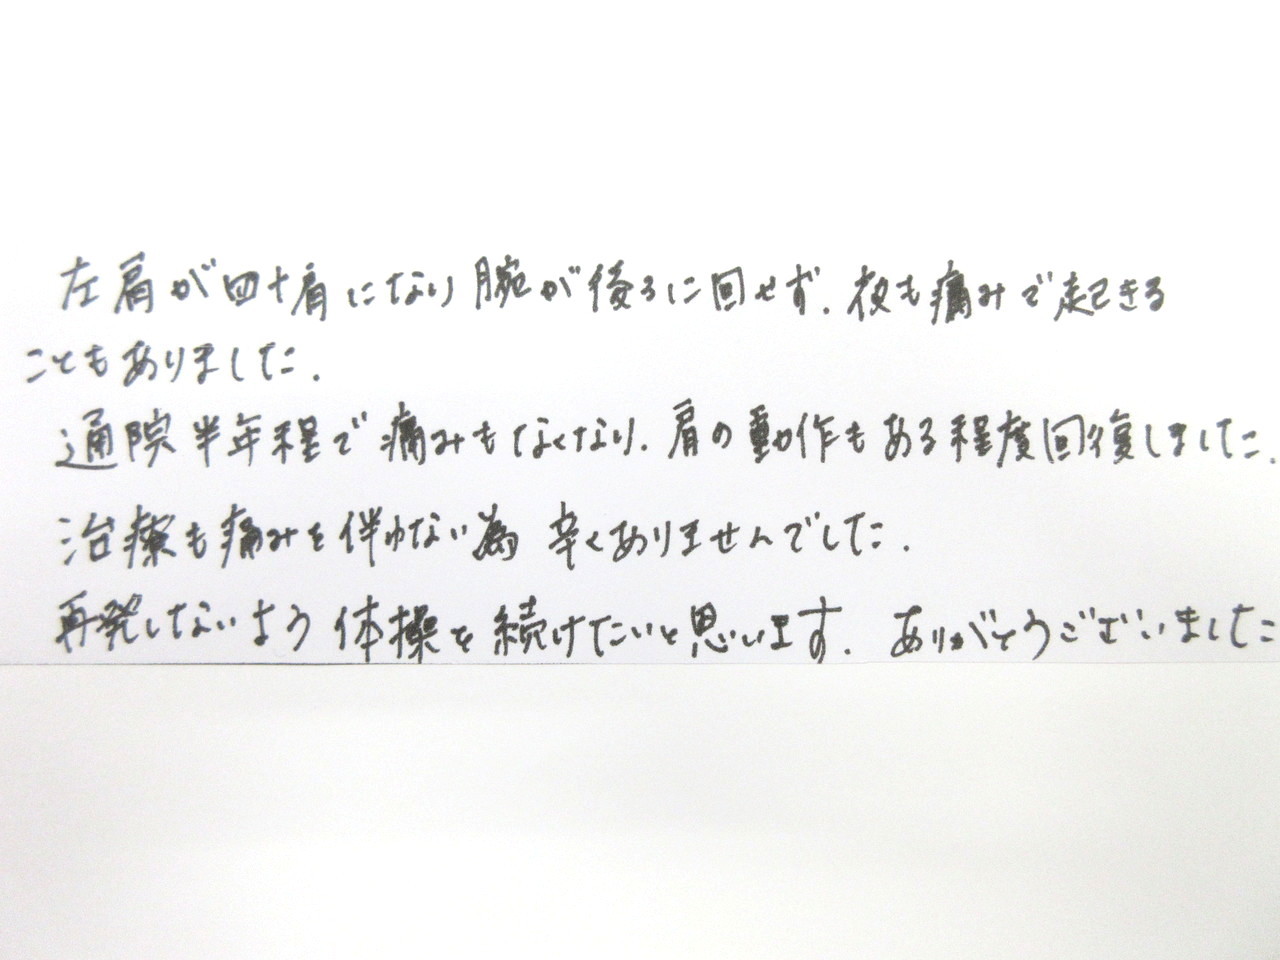 左肩が四十肩になり腕が後ろに回せず、夜も痛みで起きる
こともありました.
通院半年程で痛みもなくなり、肩の動作もある程度回復しました.
治療も痛みを伴わない為 辛くありませんでした.
再発しないよう体操を続けたいと思います. ありがとうございました